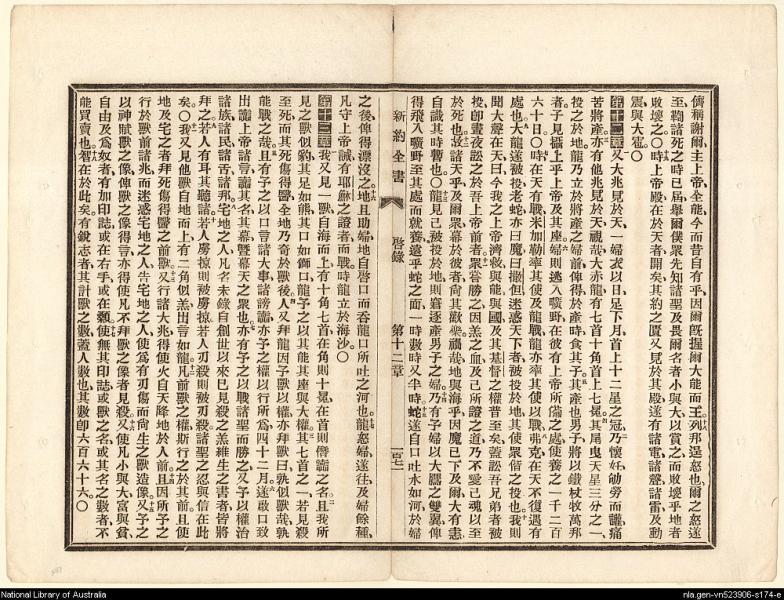 儕稱謝爾主上帝全能今而昔自有乎因爾既握爾大能而王列邦逞怒也爾之怒遂
至鞫諸死之時已屆舉爾僕眾先知諸聖及畏爾名者小與大以賞之而敗壞乎地者
敗壞之○時上帝殿在於天者開矣其約之匱又見於其殿遂有諸電諸聲諸雷及動
震與大雹○
第十二章又大兆見於天一婦衣以日足下月首上十二星之冠乃懷妊劬勞而謹痛
苦將產亦有他兆見於天視哉大赤龍有七首十角首上七冕其尾曳天星三分之一
投之於地龍乃立於將產之婦前俾得於產時食其子其產也男子將以鐵杖牧萬邦
者子見攝上乎上帝及其座婦則逃入曠野在彼有上帝所備之處使養之一千二百
六十日○時在天有戰米加勒率其使及龍戰龍亦率其使以戰弗克在天不復遇有
處也大龍遂被投老蛇亦曰魔曰撒但迷惑天下者被投於地其使眾偕之投也我則
聞大聲在天曰今我之上帝濟救與能與國及其基督之權普至矣蓋訟吾兄弟者被
投即晝夜訟之於吾上帝前者眾嘗勝之因羔之血及己所證之道乃不愛己魂以至
於死也故諸天乎及爾眾幕於彼者尚其歡樂禍哉地與海乎因魔已下及爾大有恚
自識其時暫也○龍見己被投於地則窘逐產男子之婦乃有予婦以大鷹之雙翼俾
得飛入曠野至其處而就養遠乎蛇之面一時數時又半時蛇遂自口吐水如河於婦
新約全書 啓錄 第十二章
之後俾得漂沒之地且助婦地自啓口而吞龍口所吐之河也龍怒婦遂往及婦餘種
凡守上帝誡有耶穌之證者而戰時龍立於海沙○
第十三章我又見一獸自海而上有十角七首在角則十冕在首則僭讟之名且我所
見之獸似豹其足如熊其口如獅口龍予之以其能其座與大權其七首之一若見殺
至死而其死傷得醫全地乃奇於獸後人又拜龍因予獸以權亦拜獸曰孰似獸哉孰
能戰之哉且有予之以口言諸大事諸謗讟亦予之權以行所為四十二月遂啟口致
出讟上帝諸言讟其名其幕暨幕天之眾也亦有予之以戰諸聖而勝之又予以權治
諸族諸民諸舌諸邦宅地之人凡名未錄自創世以來已見殺之羔維生之書者皆將
拜之若人有耳其聽諸若人虜掠則被虜掠若人刃殺則被刃殺諸聖之忍與信在此
矣○我又見他獸自地而上有二角似羔出言如龍凡前獸之權斯行之於其前且使
地及宅之者拜死傷得醫之前獸又行諸大兆得使火自天降地於人前且因所予之
行於獸前諸兆而迷惑宅地之人告宅地之人使為有刃傷而尚生之獸造像又予之
以神賦獸之像俾獸之像得言亦得使凡不拜獸之像者見殺又使凡小與大富與貧
自由及為奴者有加印誌或在右手或在額使無其印誌或獸之名或其名之數者不
能買賣也智在於此矣有銳志者其計獸之數蓋人數也其數即六百六十六○
National Library of Australia
nla.gen-vn523906-s174-e